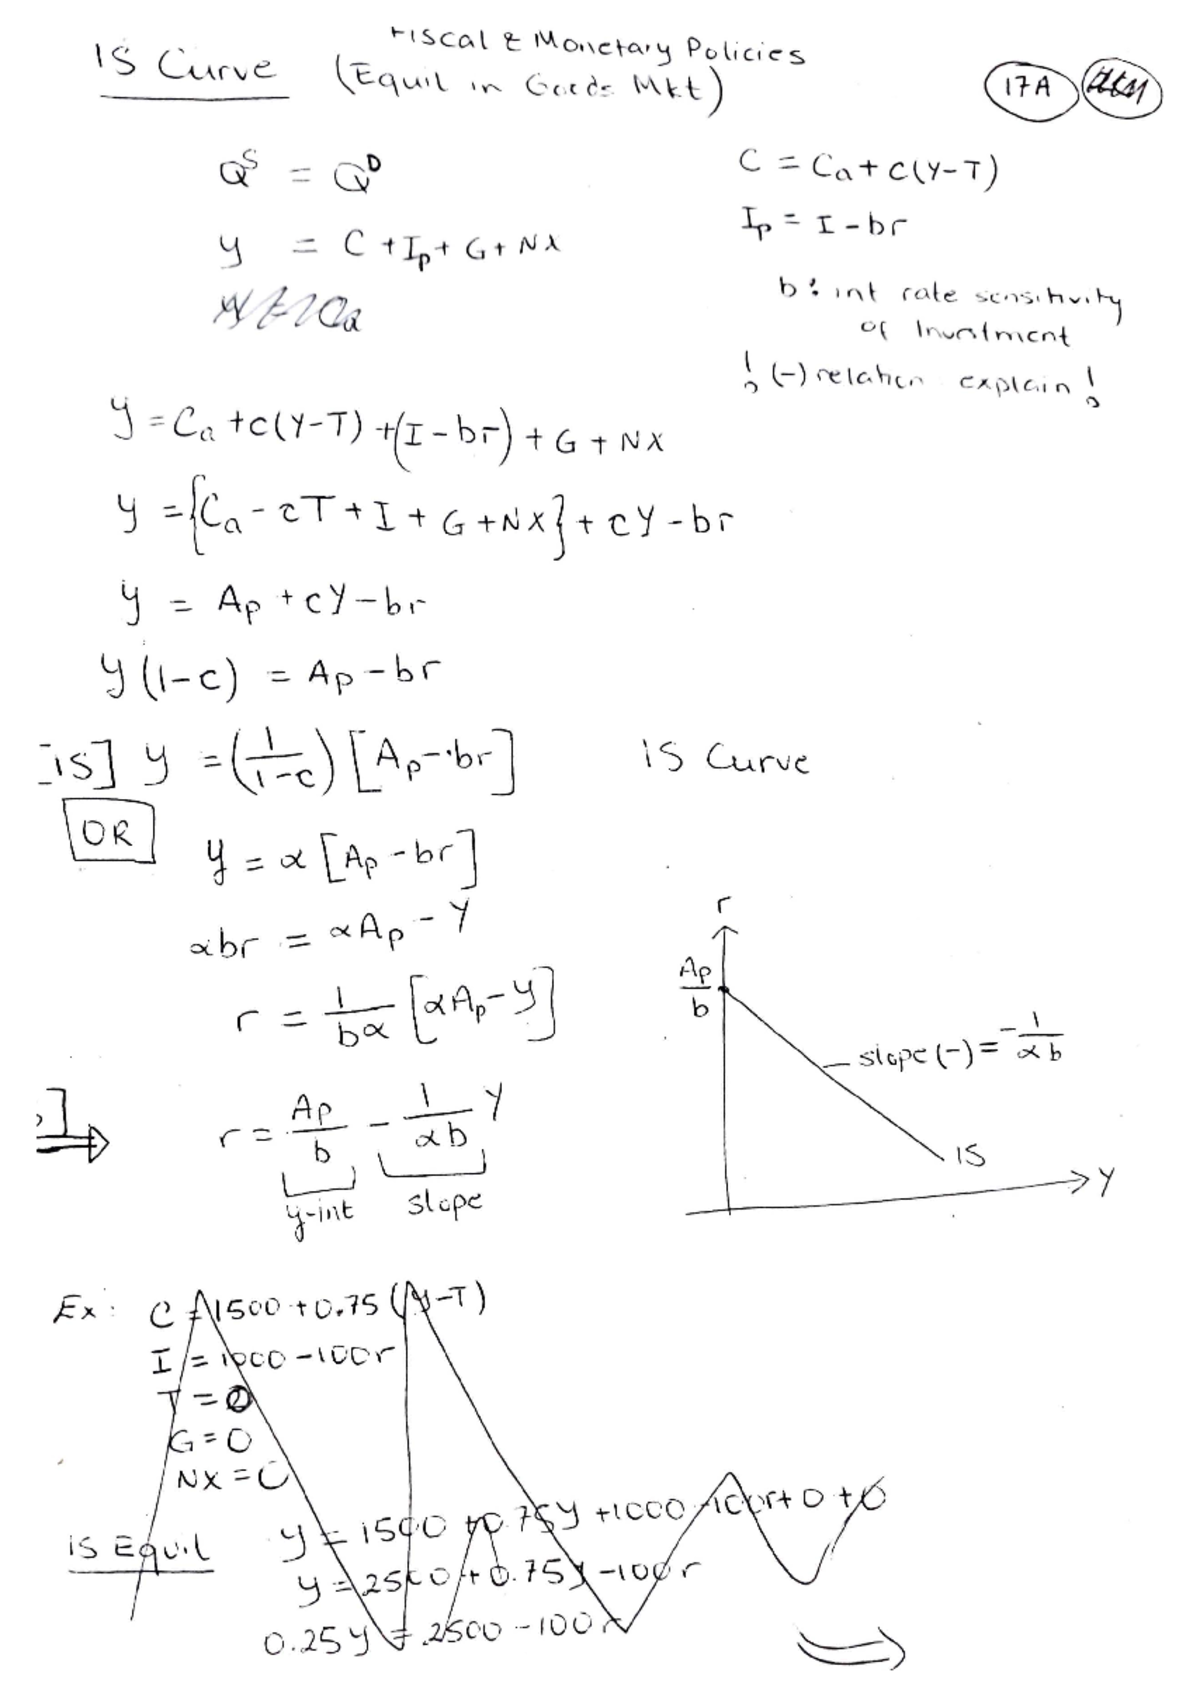 Fiscal & Monetary Policies
IS Curve (Equil in Goods Mkt)
17A
Q^S = Q^D
C = Ca + c(Y-T)
y = C + Ip + G + NX
Ip = I - br
b: int rate sensitivity
of Investment
! (-) relation explain!
y = Ca + c(Y-T) + (I - br) + G + NX
y = {Ca - cT + I + G + NX} + cY - br
y = Ap + cY - br
y (1-c) = Ap - br
IS] y = (1/1-c) [Ap - br] IS Curve
OR
y = α [Ap - br]
αbr = αAp - Y
r = 1/bα [αAp - y]
r = Ap/b - 1/αb Y
y-int slope
r
Ap/b
slope (-) = -1/αb
IS
Y
Ex: C = 1500 + 0.75 (Y-T)
I = 1000 - 100r
T = 0
G = 0
NX = 0
IS Equil y = 1500 + 0.75y + 1000 - 100r + 0 + 0
y = 2500 + 0.75y - 100r
0.25y = 2500 - 100r